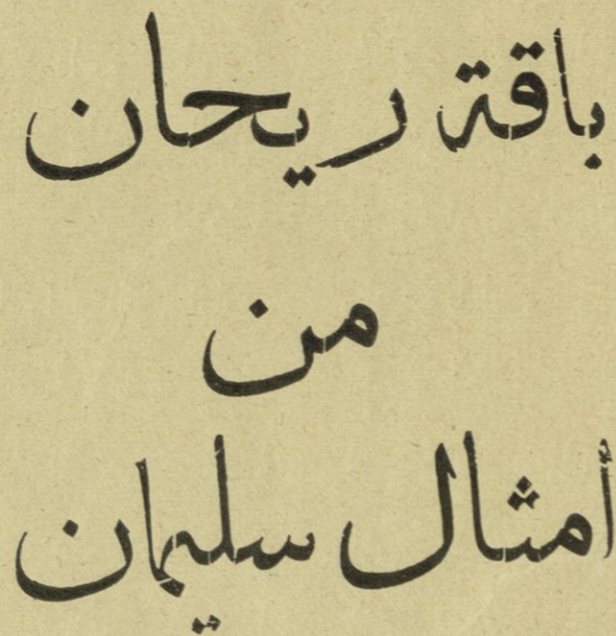 باقة ريحان
من
أمثال سليمان